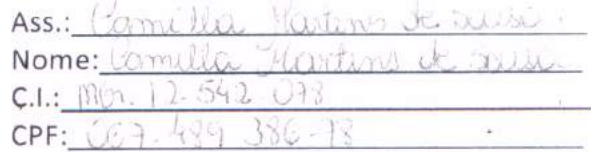 Ass.: Camilla Martins de Sousa.
Nome: Camilla Martins de Sousa.
C.I.: MGn. 12.542 078
CPF: 067.489 386-78